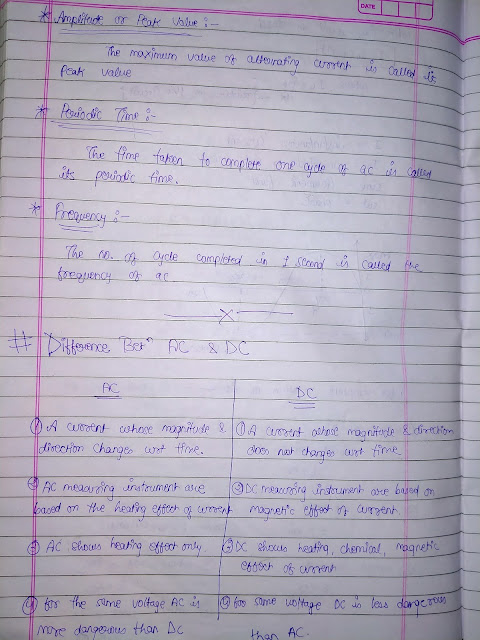 DATE
* Amplitude or Peak Value :-
The maximum value of alternating current is called its
Peak value
* Periodic Time :-
The time taken to complete one cycle of ac is called
its periodic time.
* Frequency :-
The no. of cycle completed in 1 second is called the
frequency of ac
# Difference Betn AC & DC
AC
① A current whose magnitude &
direction changes wrt time.
② AC measuring instrument are
based on the heating effect of current
③ AC shows heating effect only.
④ for the same voltage AC is
more dangerous than DC
DC
① A current whose magnitude & direction
does not changes wrt time.
② DC measuring instrument are based on
magnetic effect of current
③ DC shows heating, chemical, magnetic
effect of current
④ for same voltage DC is less dangerous
than AC.